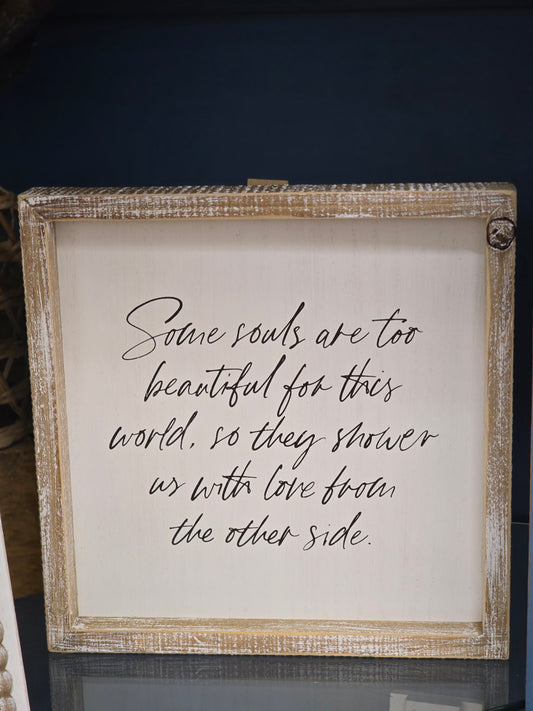 Some souls are too
beautiful for this
world, so they shower
us with love from
the other side.